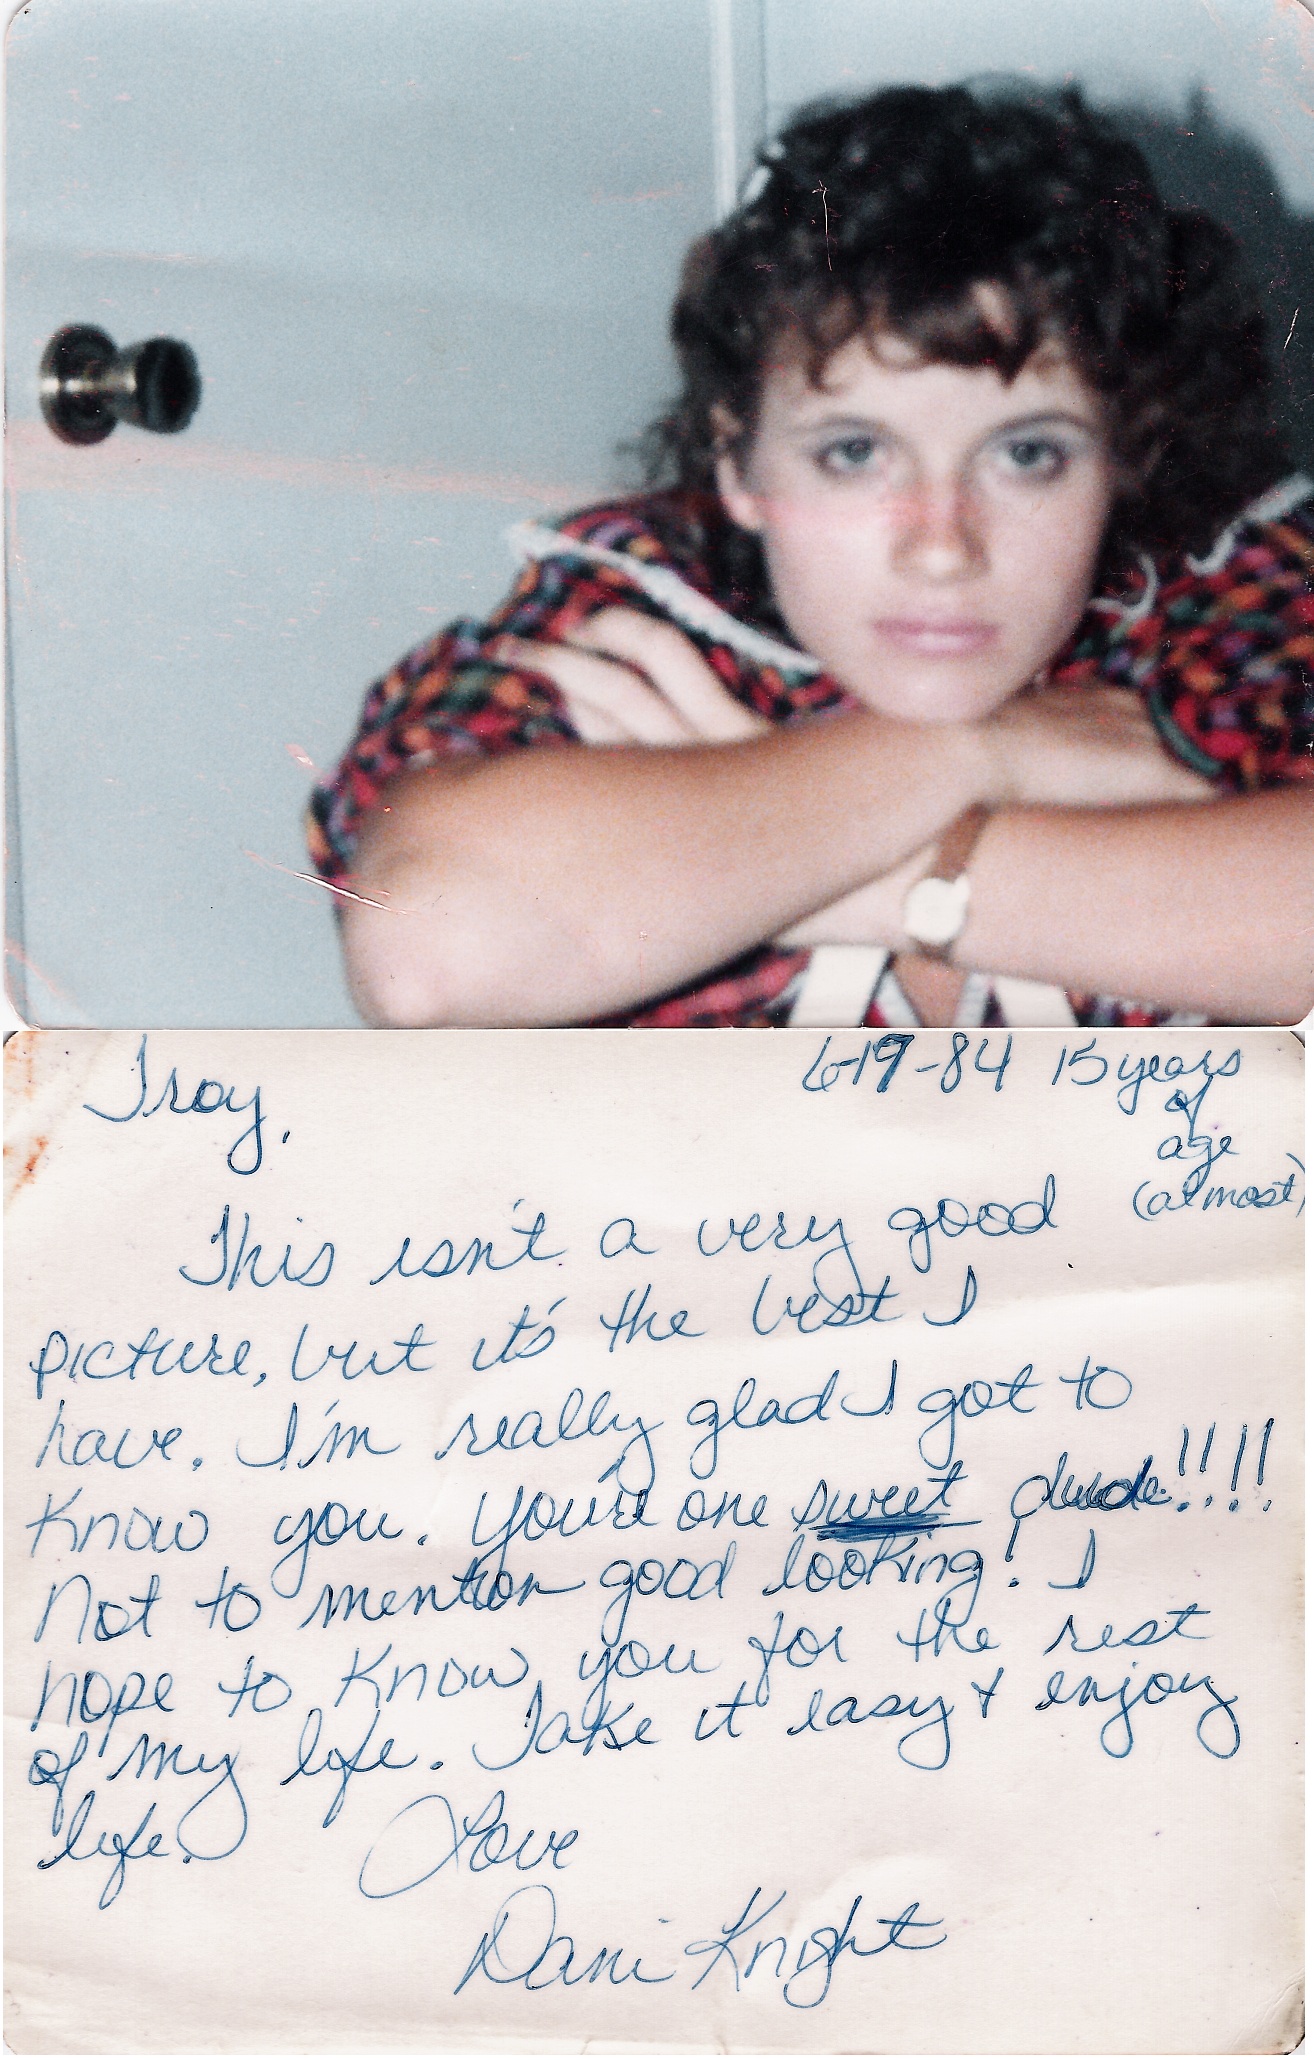 Troy,
6-19-84 15 years
of
age
(almost)
This isn't a very good
picture, but it's the best I
have. I'm really glad I got to
know you. You're one sweet dude!!!!
Not to mention good looking! I
hope to know you for the rest
of my life. Take it easy & enjoy
life.
Love
Dani Knight